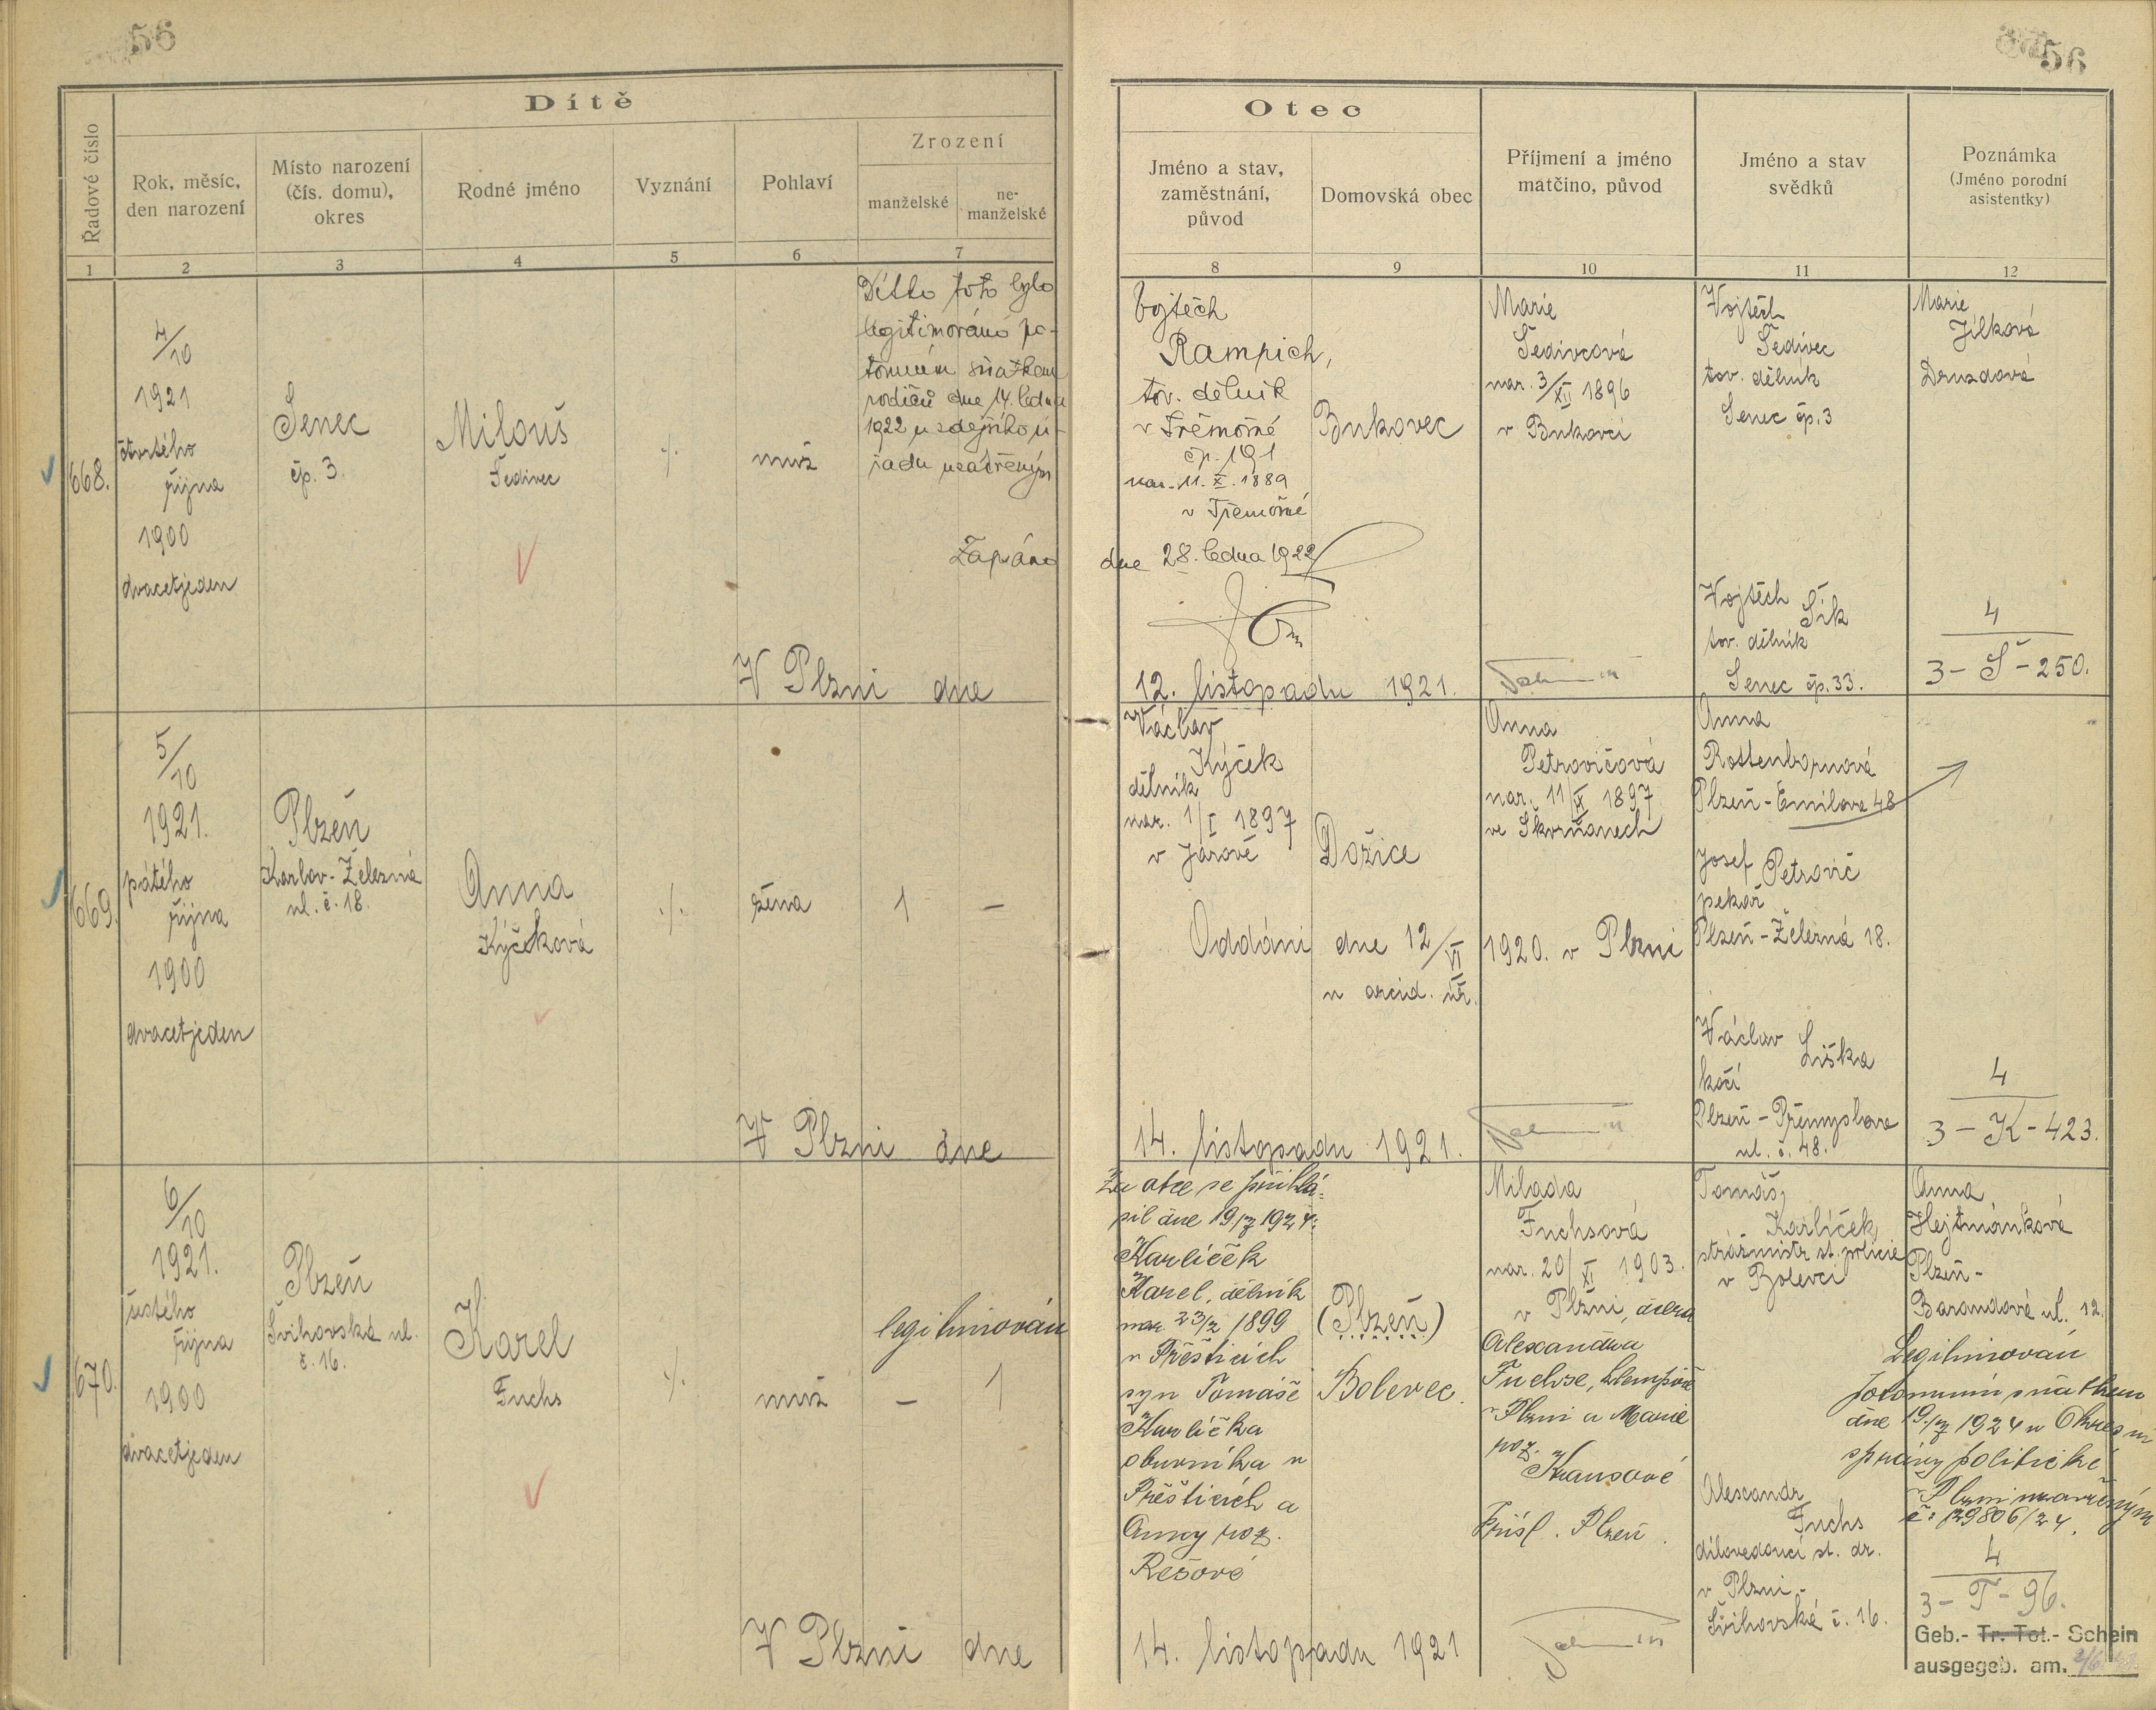 56
56
Dítě
Řadové číslo
Rok, měsíc,
den narození
Místo narození
(čís. domu),
okres
Rodné jméno
Vyznání
Pohlaví
Zrození
manželské
ne-
manželské
1
2
3
4
5
6
7
Otec
Jméno a stav,
zaměstnání,
původ
Domovská obec
Příjmení a jméno
matčino, původ
Jméno a stav
svědků
Poznámka
(Jméno porodní
asistentky)
8
9
10
11
12
668.
4/10
1921
čtvrtého
října
1900
dvacetjeden
Senec
čp. 3.
Milouš
Šedivec
./.
muž
Dítko toto bylo
legitimováno po-
tomním sňatkem
rodičů dne 14. ledna
1922 u zdejšího ú-
řadu uzavřeným
Zapsáno
V Plzni dne
Vojtěch
Rampich,
tov. dělník
v Třemošné
čp. 191
nar. 11. X. 1889
v Třemošné
dne 28. ledna 1922
12. listopadu 1921.
Bukovec
Marie
Šedivcová
nar. 3/XII 1896
v Bukovci
Vojtěch
Šedivec
tov. dělník
Senec čp. 3
Vojtěch
Šik
tov. dělník
Senec čp. 33.
Marie
Jílková
Druzdová
4
3 - Š - 250.
669.
5/10
1921.
pátého
října
1900
dvacetjeden
Plzeň
Karlov-Železná
ul. č. 18.
Anna
Kýčková
./.
žena
1
—
V Plzni dne
Václav
Kýček
dělník
nar. 1/I 1897
v Járově
Dožice
Oddáni dne 12/VI 1920. v Plzni
u arcid. úř.
14. listopadu 1921.
Anna
Petrovičová
nar. 11/IX 1897
ve Skvrňanech
Anna
Rottenbornová
Plzeň - Emilova 48
Josef
Petrovič
pekař
Plzeň - Železná 18.
Václav
Liška
kočí
Plzeň - Přemyslova
ul. č. 48.
4
3 - K - 423.
670.
6/10
1921.
šestého
října
1900
dvacetjeden
Plzeň
Švihovská ul.
č. 16.
Karel
Fuchs
./.
muž
legitimován
—
1
V Plzni dne
Za otce se přihlá-
sil dne 19/7 1924:
Karlíček
Karel, dělník
nar. 23/2 1899
v Přešticích
syn Tomáše
Karlíčka
obuvníka v
Přešticích a
Anny roz.
Rešové
14. listopadu 1921
(Plzeň)
Bolevec.
Milada
Fuchsová
nar. 20/XI 1903.
v Plzni, dcera
Alexandra
Fuchse, klempíře
v Plzni a Marie
roz.
Krausové
Přísl. Plzeň.
Tomáš
Karlíček
strážmistr st. policie
v Bolevci
Alexandr
Fuchs
dílovedoucí st. dr.
v Plzni -
Švihovská č. 16.
Anna
Hejtmánková
Plzeň -
Barandova ul. 12.
Legitimován
potomním sňatkem
dne 19./7 1924 u Okresní
správy politické
v Plzni uzavřeným
č: 29806/24.
4
3 - F - 96.
Geb.- Tr. Tot.- Schein
ausgegeb. am.